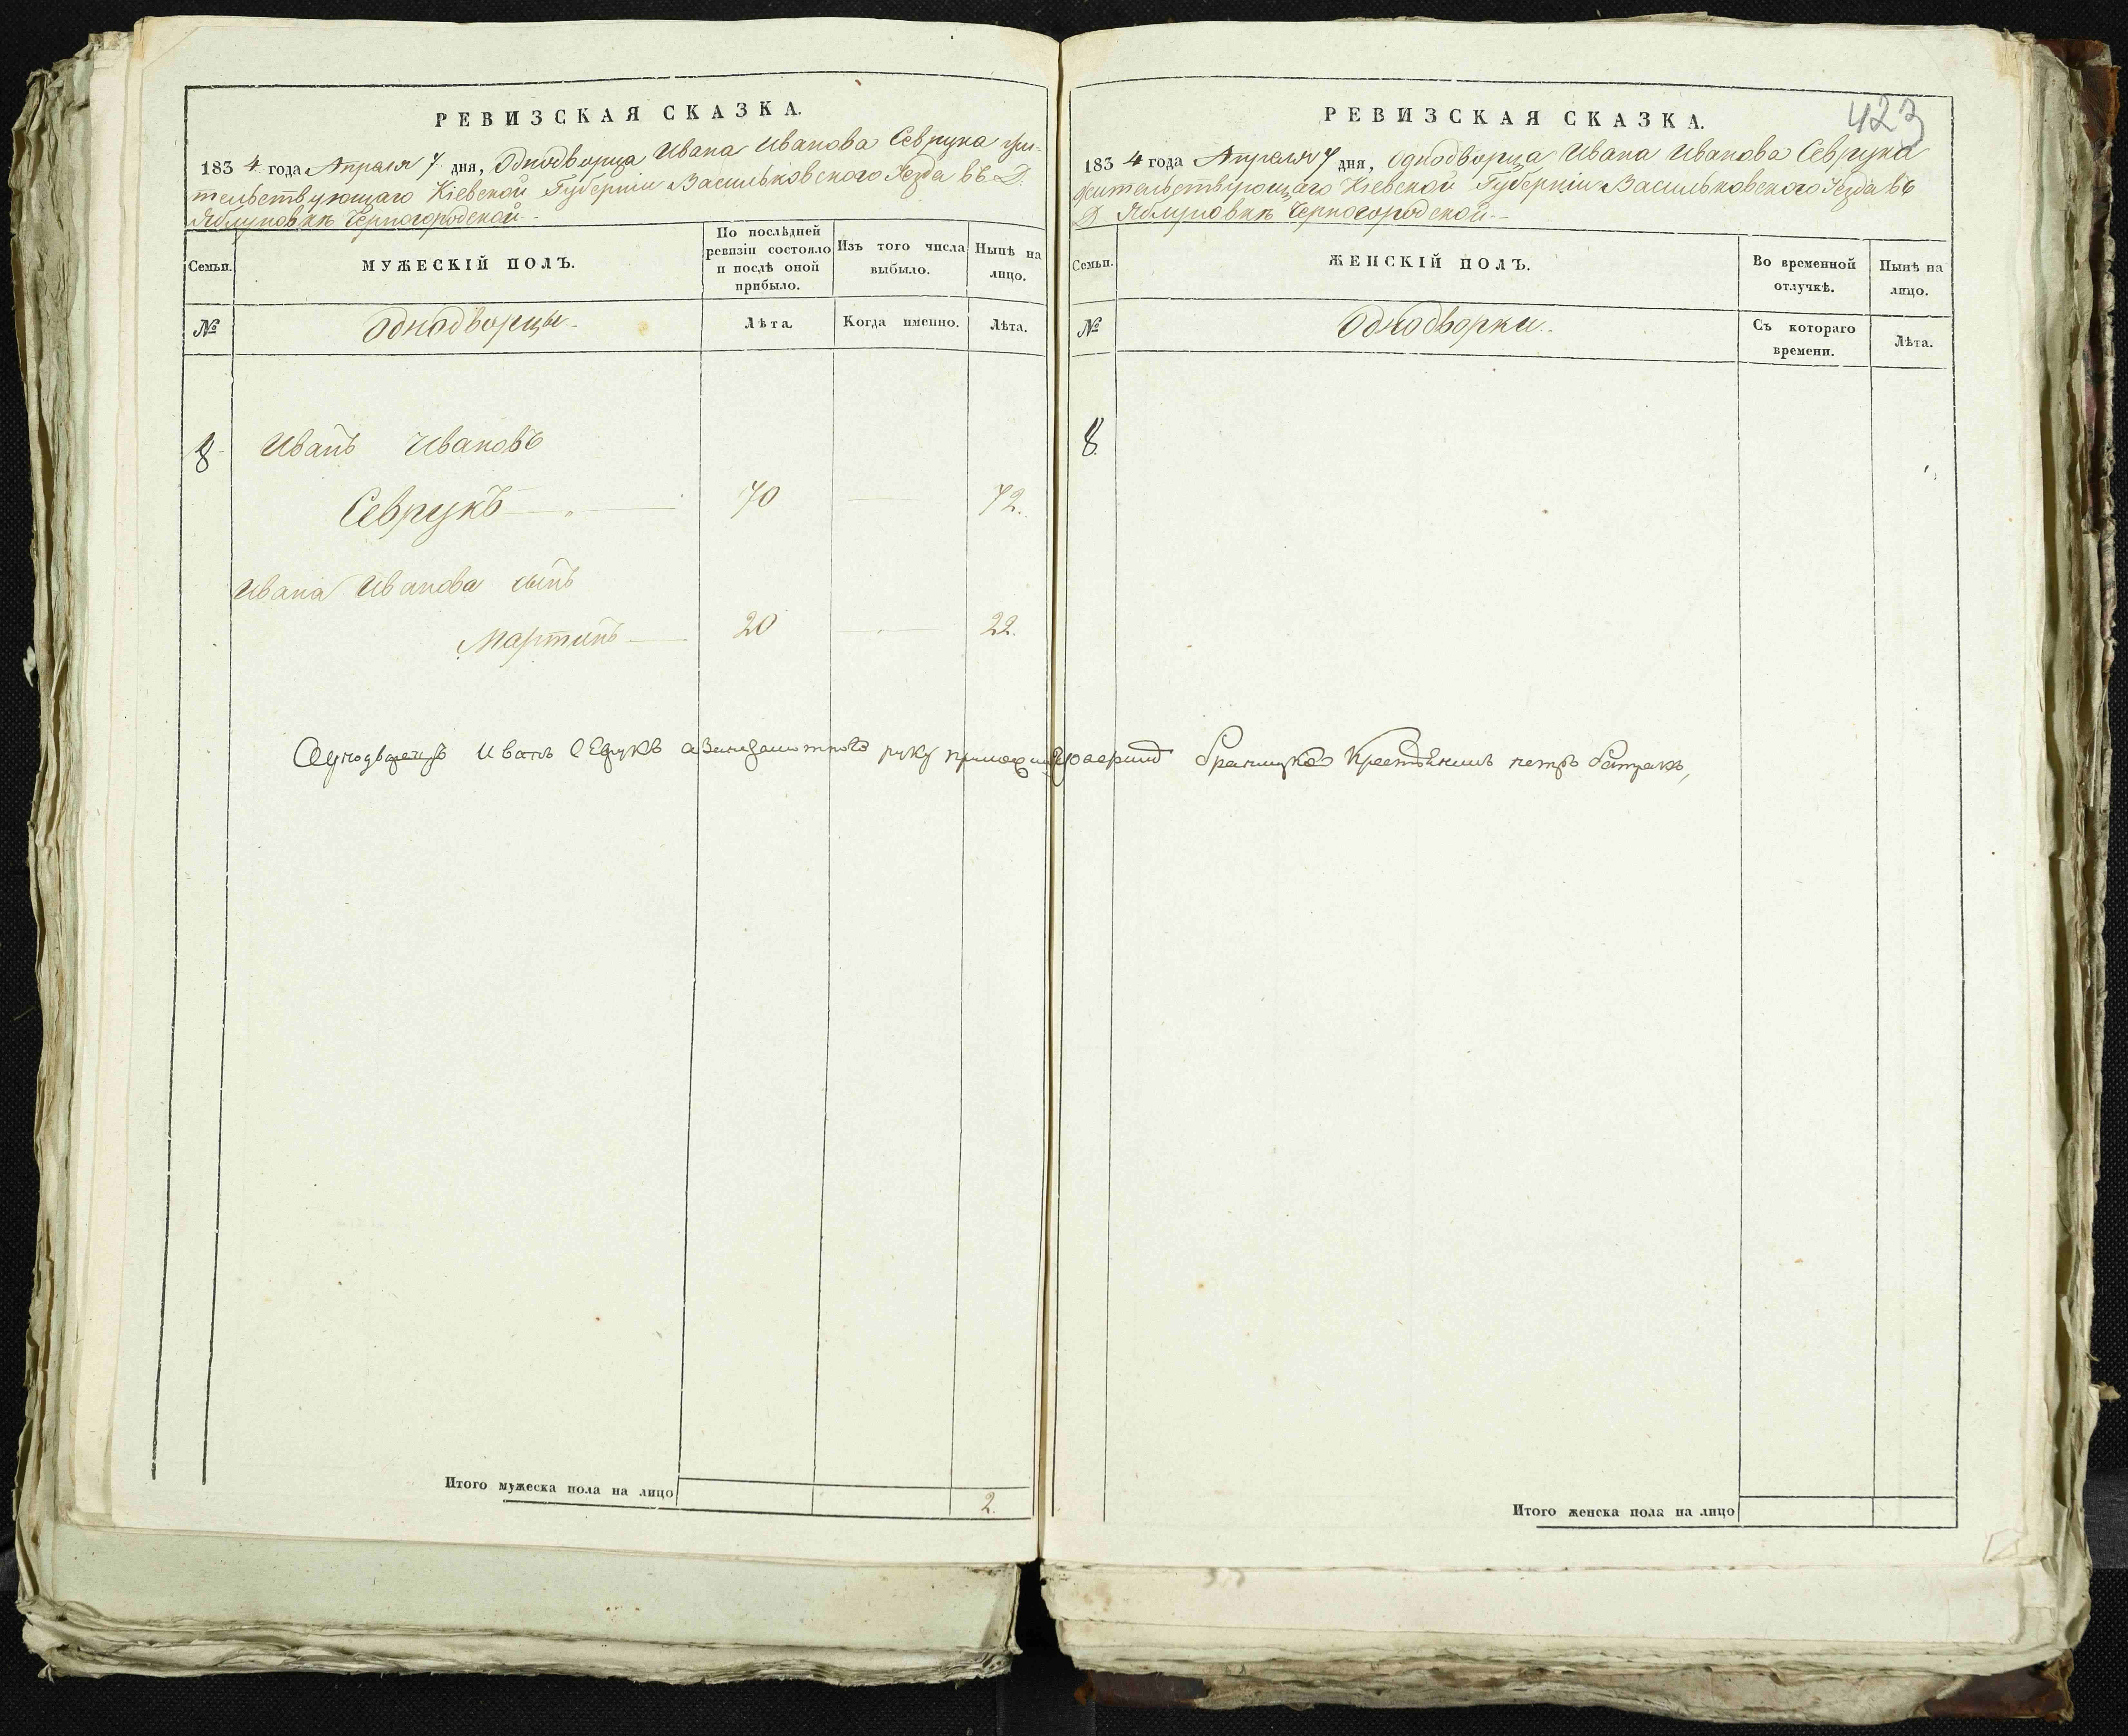 РЕВИЗСКАЯ СКАЗКА.
1834 года Апреля 7 дня, Однодворца Ивана Иванова Севрука жи-
тельствующаго Кіевской Губерніи Васильковского Уезда въ Д.
Яблуновкѣ Черногородской
Семьи.
МУЖЕСКІЙ ПОЛЪ.
По послѣдней
ревизіи состояло
и послѣ оной
прибыло.
Изъ того числа
выбыло.
Нынѣ на
лицо.
№
Однодворцы
Лѣта
Когда именно.
Лѣта.
8
Иванъ Ивановъ
Севрукъ
70
72.
Ивана Иванова сынъ
Мартинъ
20
22.
Однодворецъ Иванъ руку
Итого мужеска пола на лицо
2.
423
РЕВИЗСКАЯ СКАЗКА.
1834 года Апреля 7 дня, Однодворца Ивана Иванова Севрука
жительствующаго Кіевской Губерніи Васильковского Уезда въ
Д Яблуновкѣ Черногородской
Семьи.
ЖЕНСКІЙ ПОЛЪ.
Во временной
отлучкѣ.
Нынѣ на
лицо.
№
Однодворки
Съ котораго
времени.
Лѣта.
8.
петръ
Итого женска пола на лицо